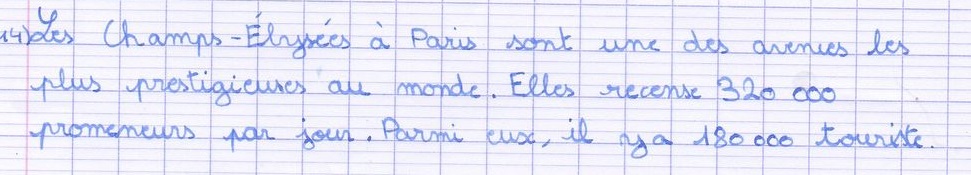 14) Les Champs-Élysées à Paris sont une des avenues les
plus prestigieuses au monde. Elles recense 320 000
promeneurs par jour. Parmi eux, il y a 180 000 touriste.